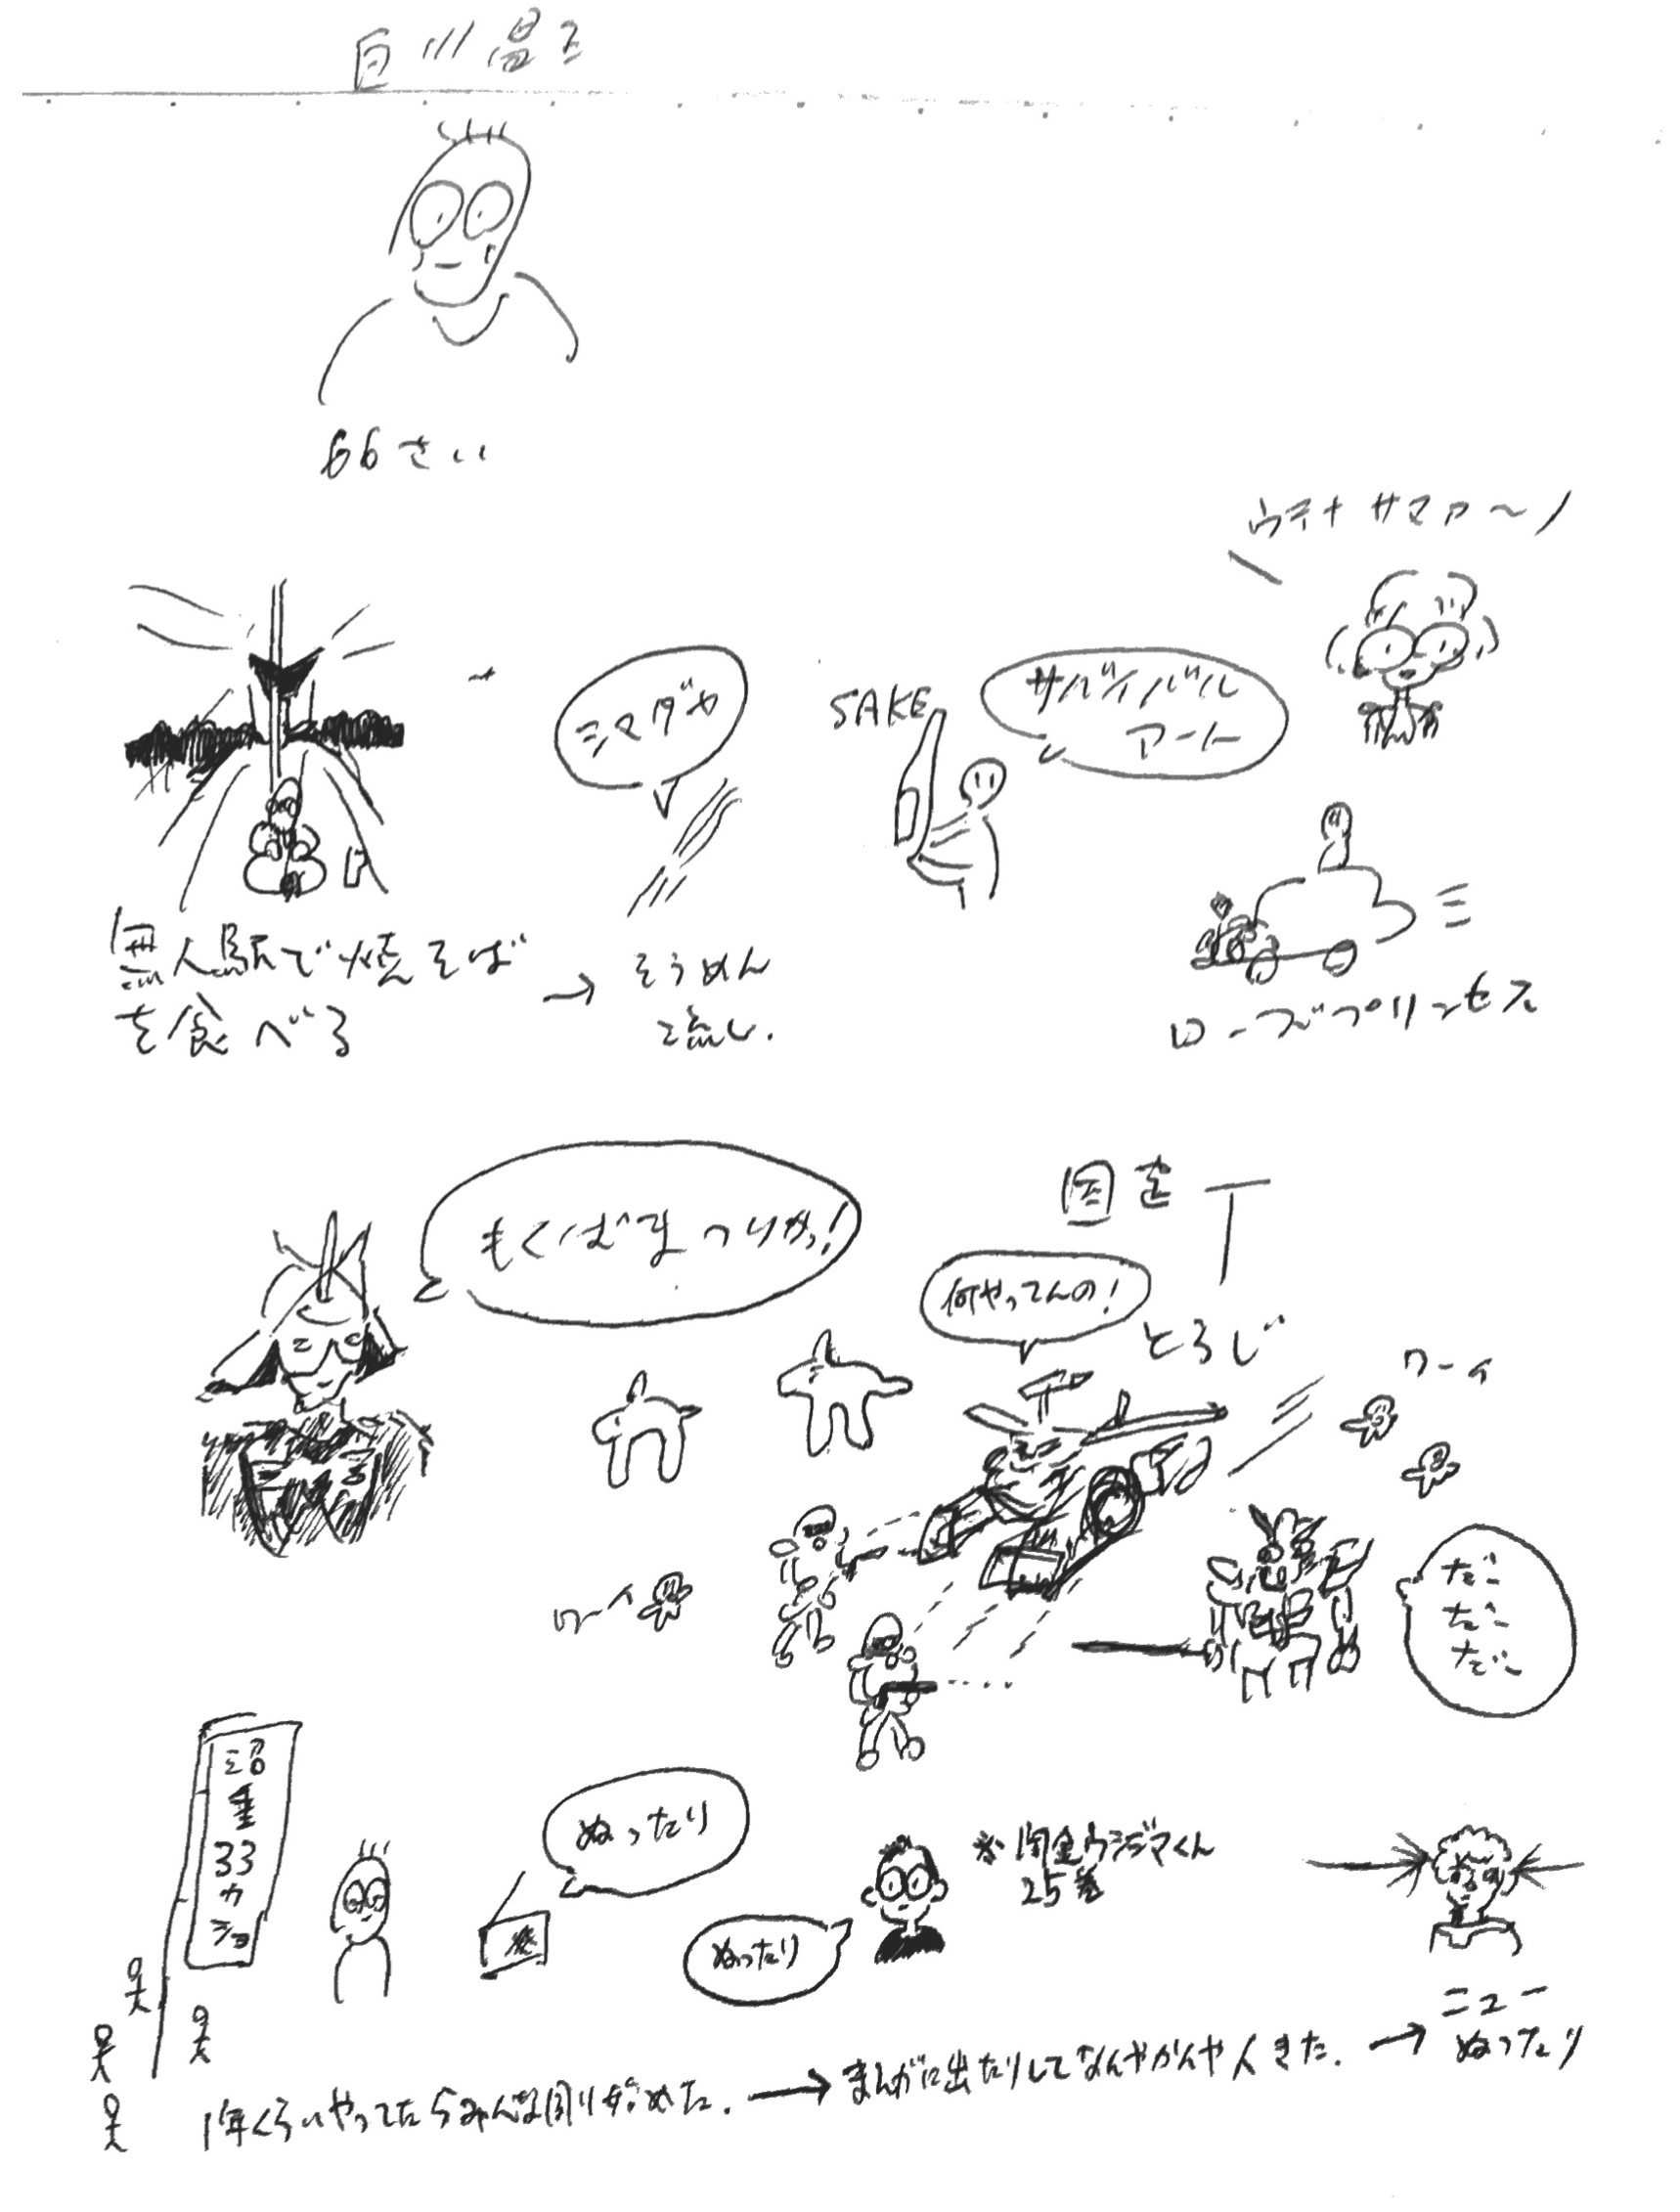 白川昌三
66さい
ウテナサマァ〜ノ
シマダヤ
SAKE
サバイバル
アート
無人駅で焼そば
を食べる
→
そうめん
流し.
ローズプリンセス
もくばまつりかっ!
国を
T
何やってんの!
とろじ
ワーイ
ワーイ
だこ
だこ
だこ
沼垂33カショ
ぬったり
ぬったり
※闇金ウシジマくん
25巻
1年くらいやってたらみんな周り始めた. → まんがに出たりしてなんやかんや人きた. →
ニュー
ぬったり